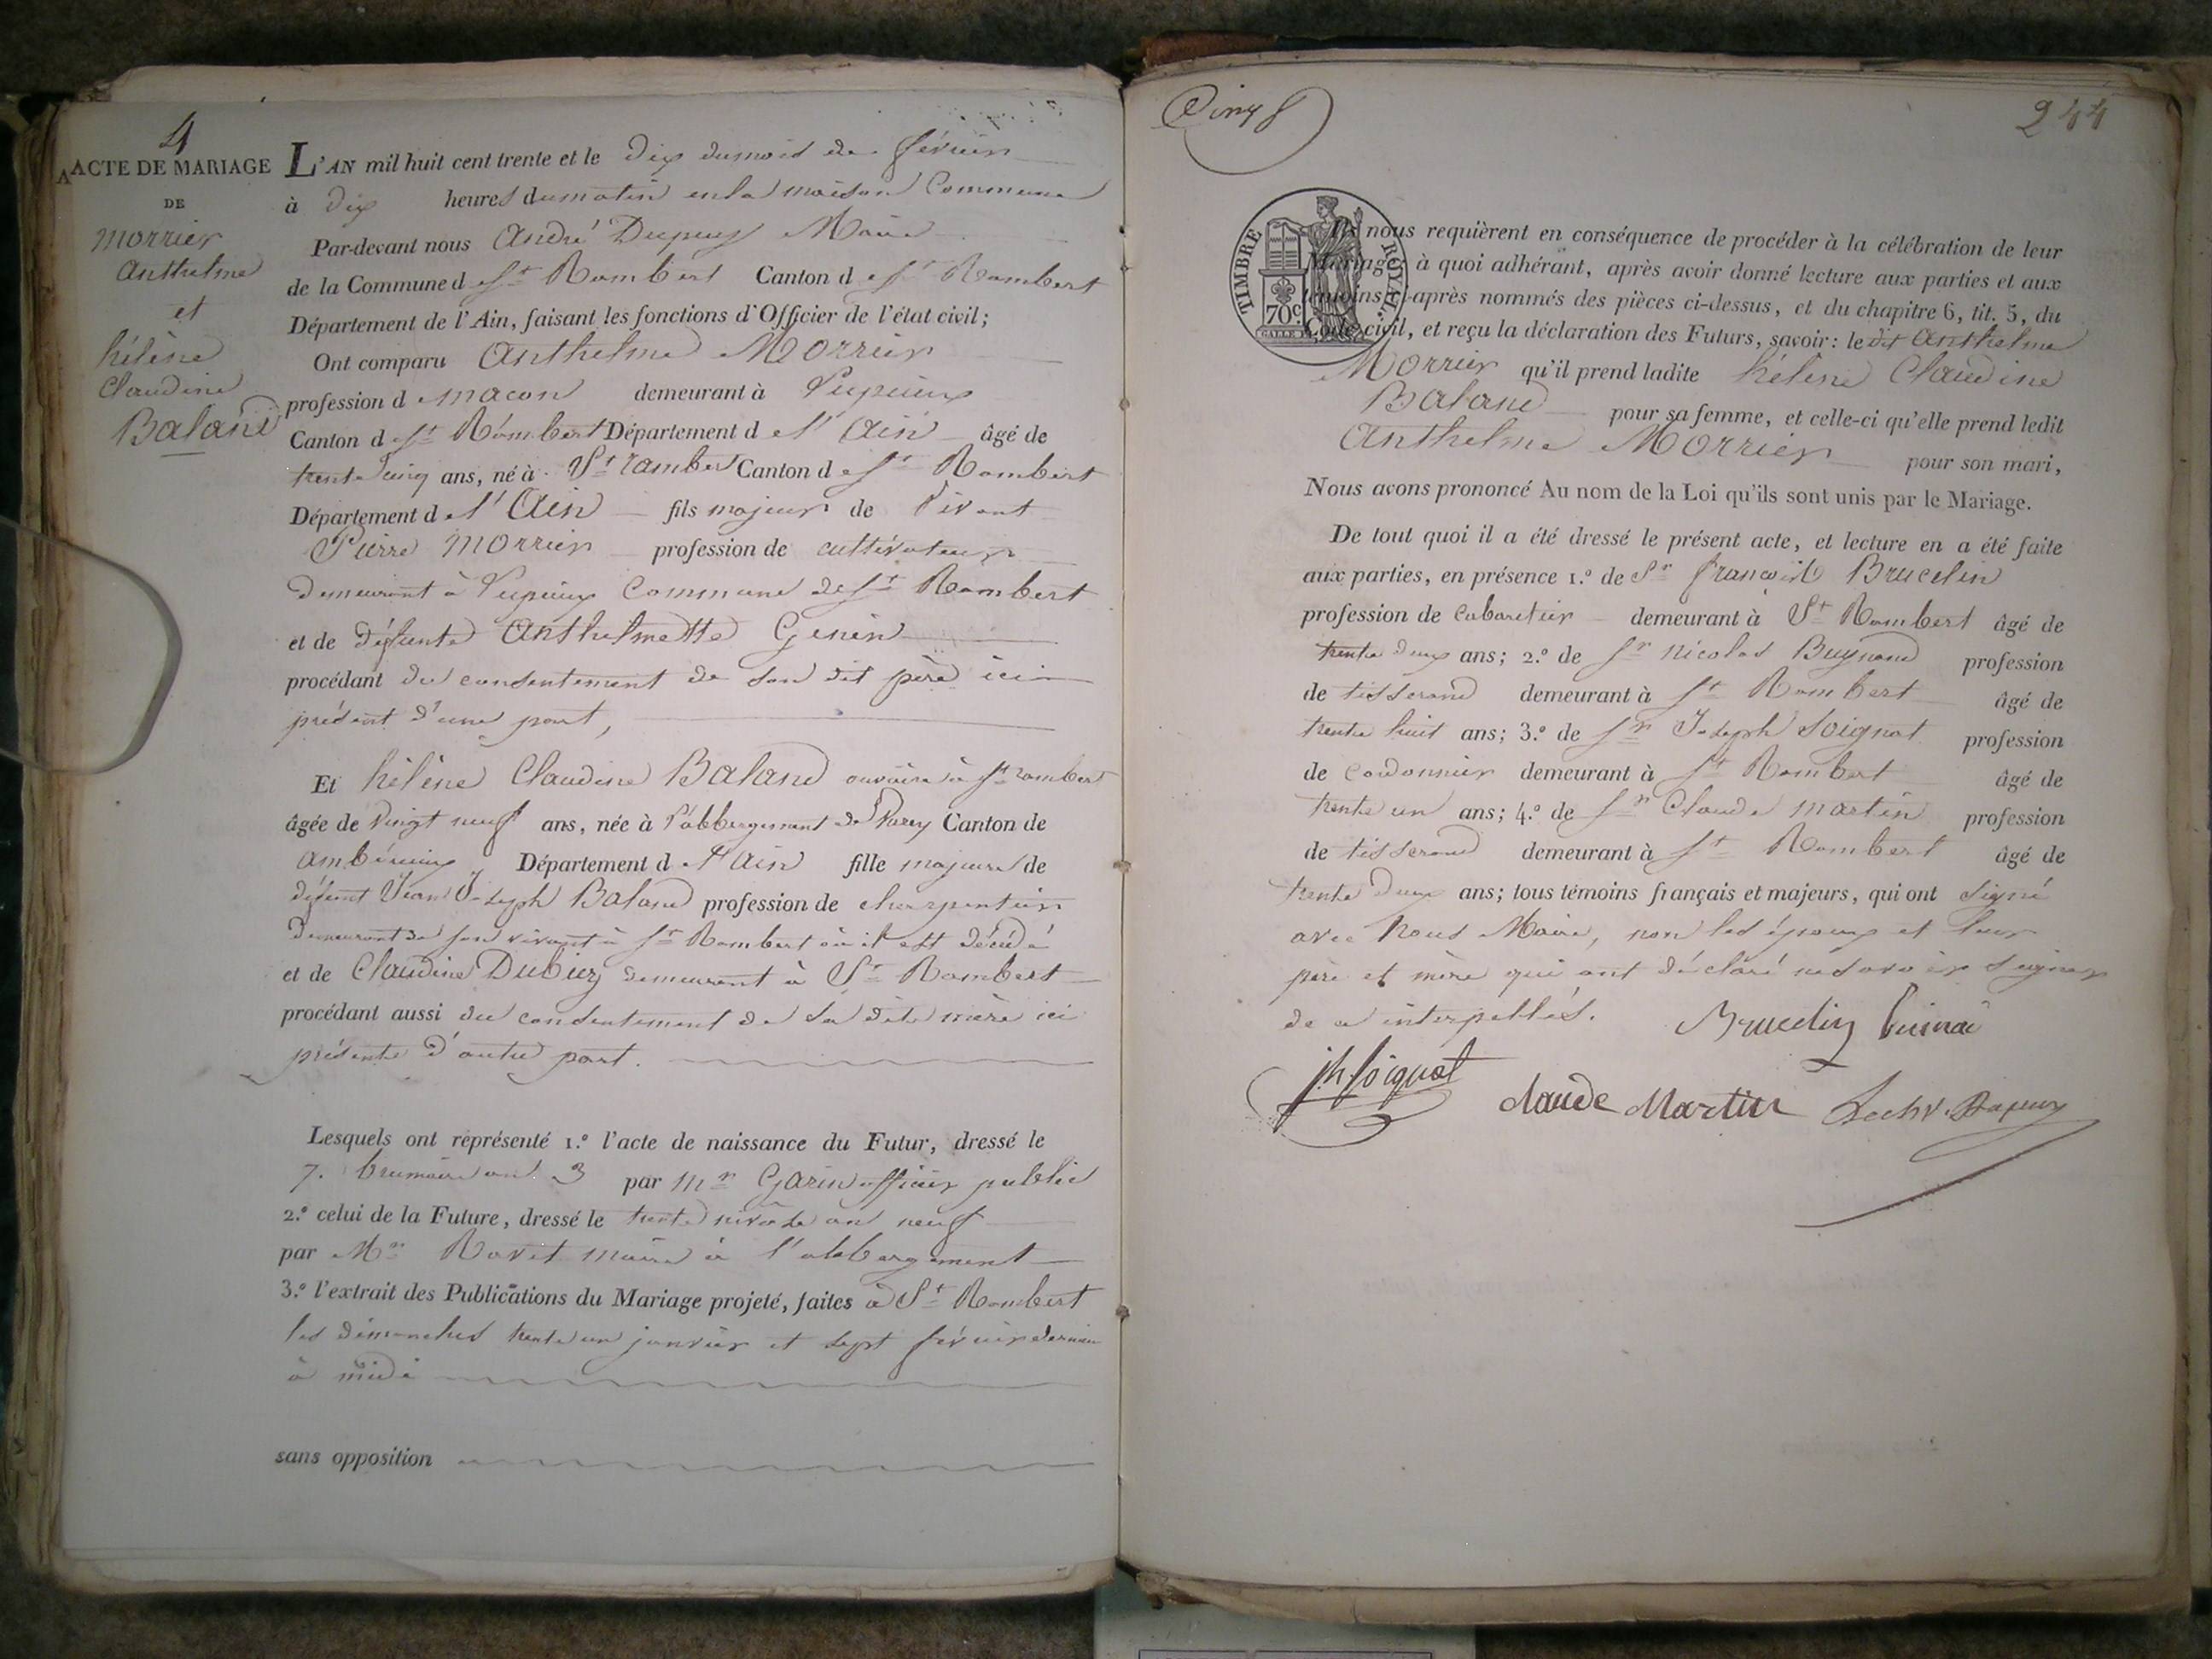 4
ACTE DE MARIAGE
DE
Morrier
Anthelme
et
hélène
Claudine
Baland
L'AN mil huit cent trente et le dix du mois de février
à dix heures du matin en la maison Commune
Par-devant nous André Dupuy Maire
de la Commune de St Rambert Canton de St Rambert
Département de l'Ain, faisant les fonctions d'Officier de l'état civil;
Ont comparu Anthelme Morrier
profession de macon demeurant à Vupieux
Canton de St Rambert Département de l'Ain âgé de
trente cinq ans, né à St rambert Canton de St Rambert
Département de l'Ain fils majeur de vivant
Pierre Morrier profession de cultivateur
demeurant à Vupieux Commune de St Rambert
et de défunte Anthelmette Genin
procédant du consentement de son dit père ici
présent d'une part,
Et hélène Claudine Baland ouvrière à St rambert
âgée de vingt neuf ans, née à l'abbergement de Varey Canton de
ambérieux Département de l'Ain fille majeure de
défunt Jean Joseph Baland profession de charpentier
demeurant de son vivant à St Rambert où il est décédé
et de Claudine Dubiez demeurant à St Rambert
procédant aussi du consentement de sa dite mère ici
présente d'autre part.
Lesquels ont représenté 1.º l'acte de naissance du Futur, dressé le
7. brumaire an 3 par Mr Garin officier public
2.º celui de la Future, dressé le trente nivose an neuf
par Mr Ravet maire à l'abbergement
3.º l'extrait des Publications du Mariage projeté, faites à St Rambert
les dimanches trente un janvier et sept février dernier
à midi
sans opposition
244
TIMBRE ROYAL
70c
Ils nous requièrent en conséquence de procéder à la célébration de leur
Mariage, à quoi adhérant, après avoir donné lecture aux parties et aux
témoins ci-après nommés des pièces ci-dessus, et du chapitre 6, tit. 5, du
Code civil, et reçu la déclaration des Futurs, savoir: le dit Anthelme
Morrier qu'il prend ladite hélène Claudine
Baland pour sa femme, et celle-ci qu'elle prend ledit
Anthelme Morrier pour son mari,
Nous avons prononcé Au nom de la Loi qu'ils sont unis par le Mariage.
De tout quoi il a été dressé le présent acte, et lecture en a été faite
aux parties, en présence 1.º de Sr françois Brucelin
profession de Cabaretier demeurant à St Rambert âgé de
trente deux ans; 2.º de Sr Nicolas Buynand profession
de tisserand demeurant à St Rambert âgé de
trente huit ans; 3.º de Sr Joseph Soignat profession
de Cordonnier demeurant à St Rambert âgé de
trente un ans; 4.º de Sr Claude Martin profession
de tisserand demeurant à St Rambert âgé de
trente deux ans; tous témoins français et majeurs, qui ont signé
avec Nous Maire, non les époux et leur
père et mère qui ont déclaré ne savoir signer
de ce interpellés. Brucelin
jh. Soignat Claude Martin Dupuy